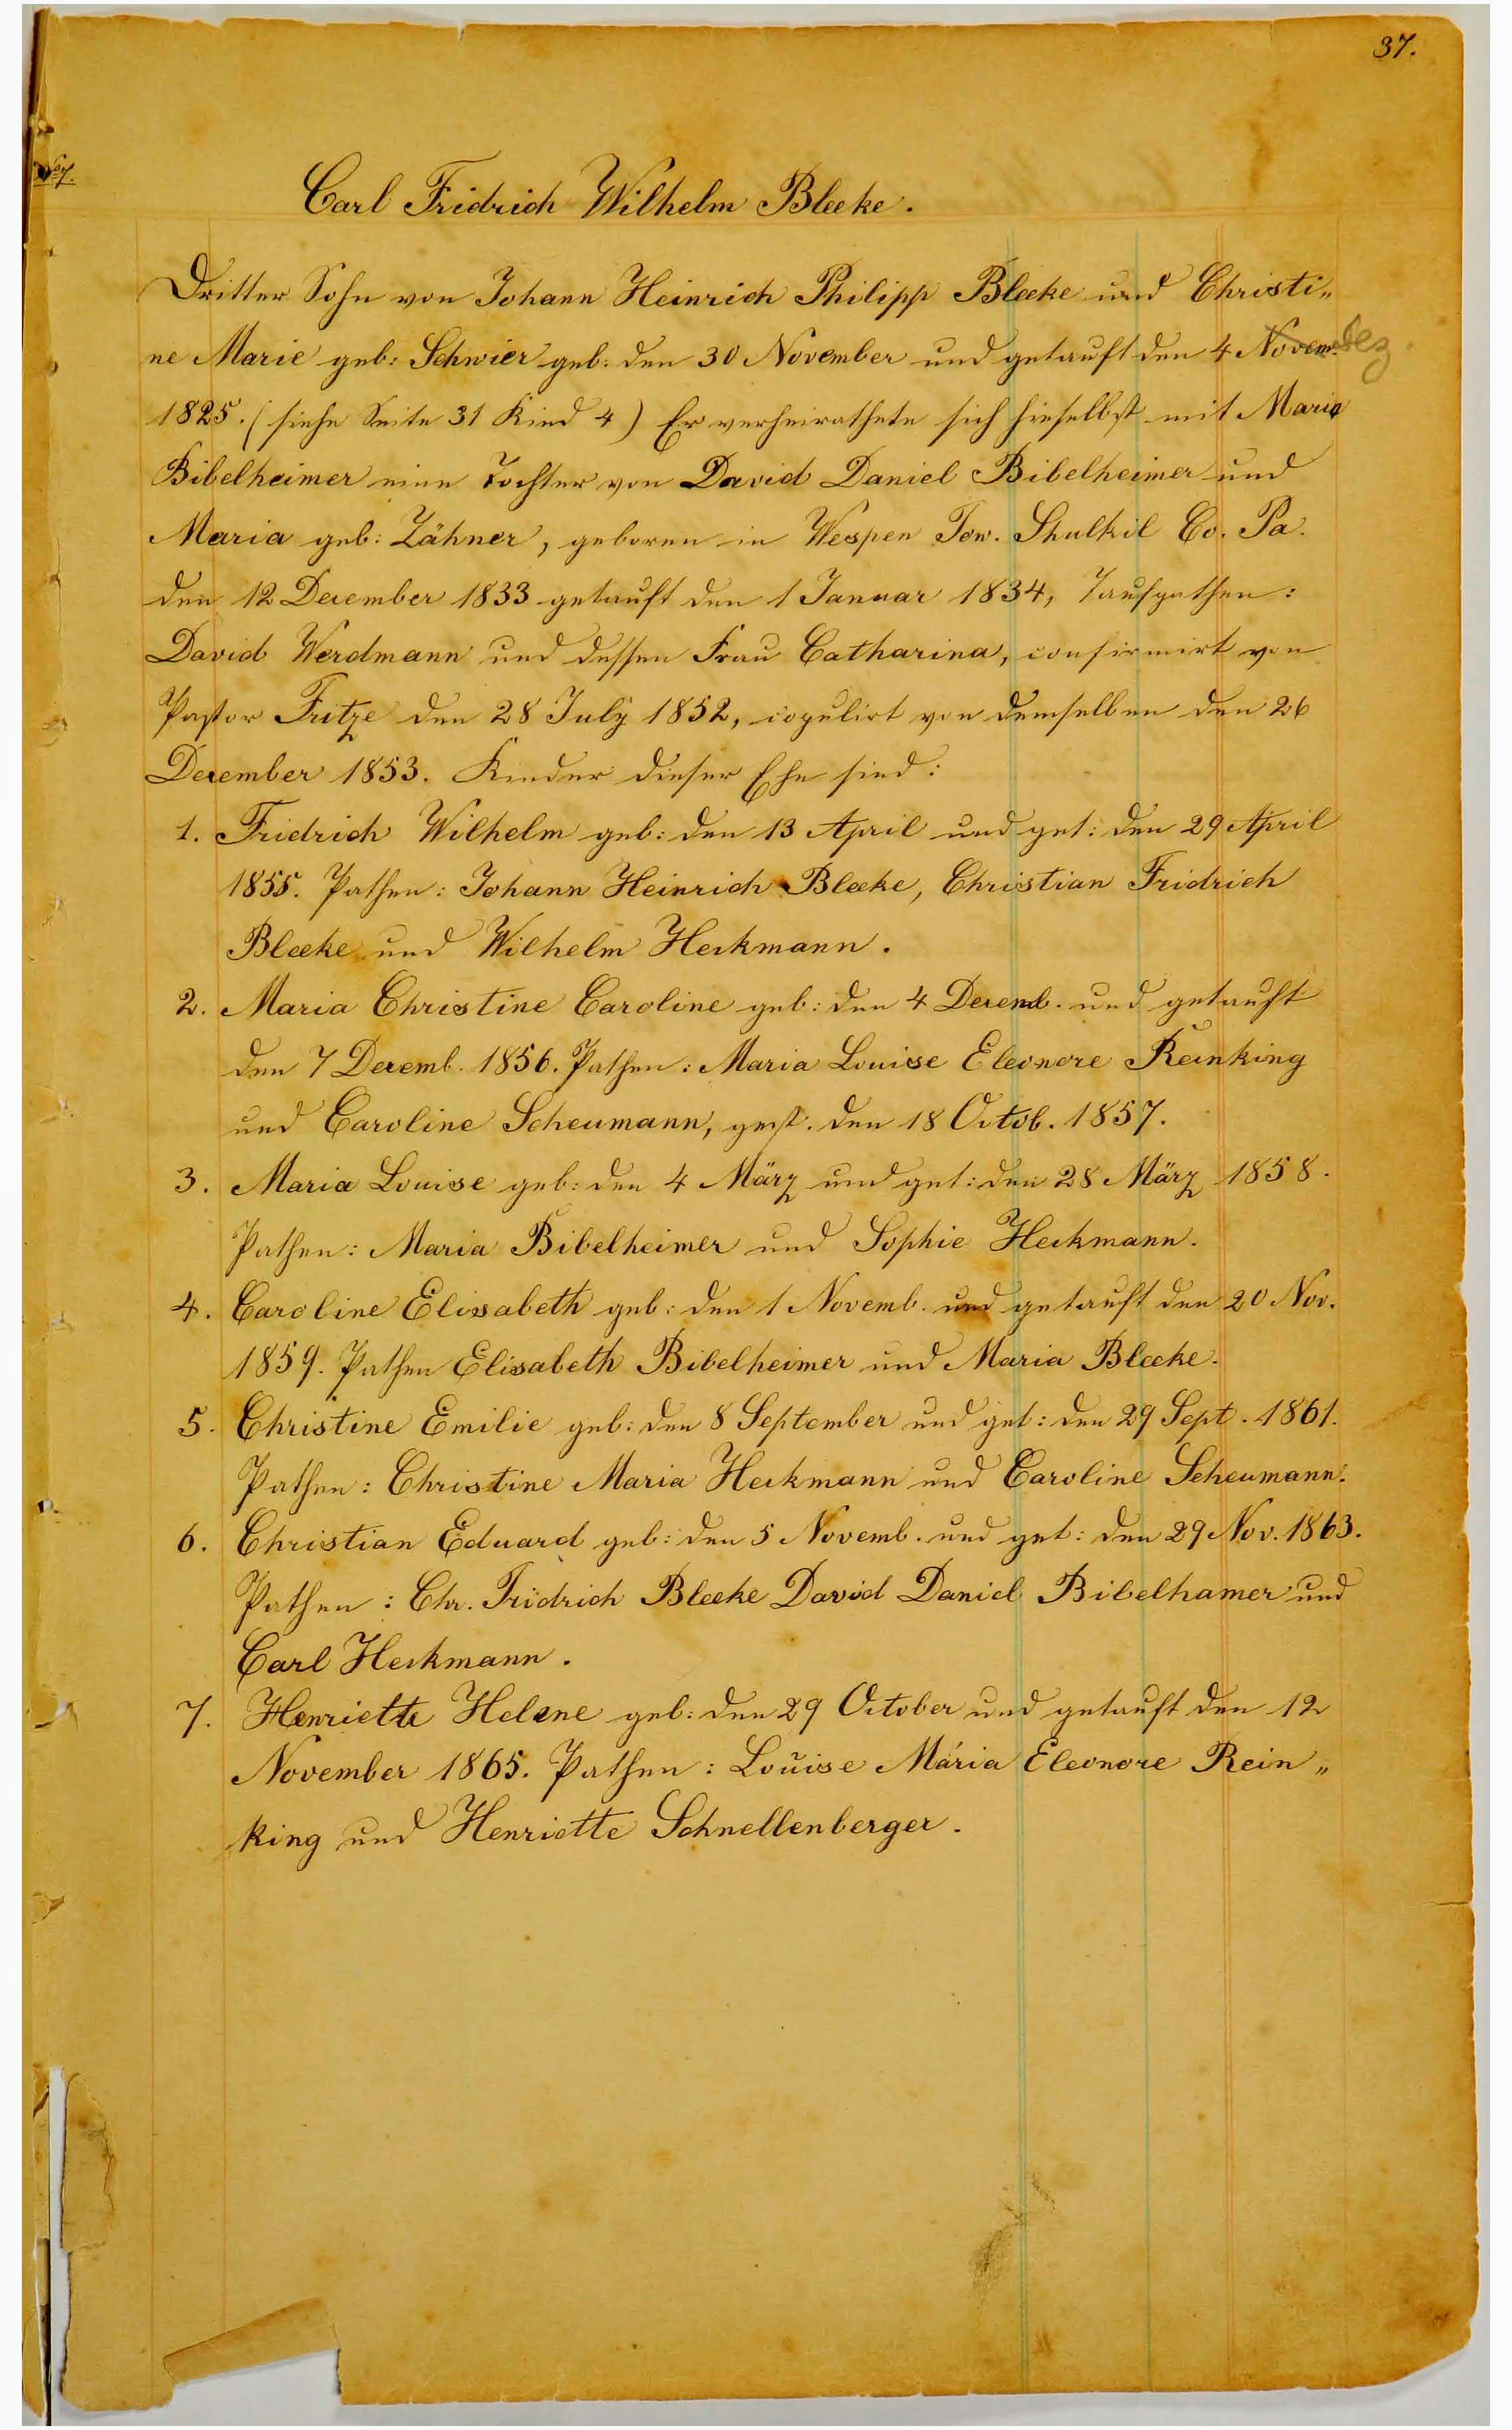 37.
Carl Fridrich Wilhelm Bleeke.
Dritter Sohn von Johann Heinrich Philipp Bleeke und Christi„
ne Marie geb: Schwier geb: den 30 November und getauft den 4 Novem. Dez.
1825. (siehe Seite 31 Kind 4) Er verheirathete sich hieselbst mit Maria
Bibelheimer eine Tochter von David Daniel Bibelheimer und
Maria geb: Zähner, geboren in Wespen Tow. Shulkil Co. Pa.
den 12 December 1833 getauft den 1 Januar 1834, Taufpathen:
David Werdmann und dessen Frau Catharina, confirmirt von
Pastor Fritze den 28 July 1852, copulirt von demselben den 26
December 1853. Kinder dieser Ehe sind:
1. Fridrich Wilhelm geb: den 13 April und get: den 29 April
1855. Pathen: Johann Heinrich Bleeke, Christian Fridrich
Bleeke und Wilhelm Heckmann.
2. Maria Christine Caroline geb: den 4 Decemb. und getauft
den 7 Decemb. 1856. Pathen: Maria Louise Eleonore Reinking
und Caroline Scheumann, gest. den 18 Octob. 1857.
3. Maria Louise geb: den 4 März und get: den 28 März 1858.
Pathen: Maria Bibelheimer und Sophie Heckmann.
4. Caroline Elisabeth geb: den 1 Novemb. und getauft den 20 Nov.
1859. Pathen Elisabeth Bibelheimer und Maria Bleeke.
5. Christine Emilie geb: den 8 September und get: den 29 Sept. 1861.
Pathen: Christine Maria Heckmann und Caroline Scheumann.
6. Christian Eduard geb: den 5 Novemb. und get: den 29 Nov. 1863.
Pathen: Chr. Fridrich Bleeke David Daniel Bibelhamer und
Carl Heckmann.
7. Henriette Helene geb: den 29 October und getauft den 12
November 1865. Pathen: Louise Maria Eleonore Rein„
king und Henriette Schnellenberger.